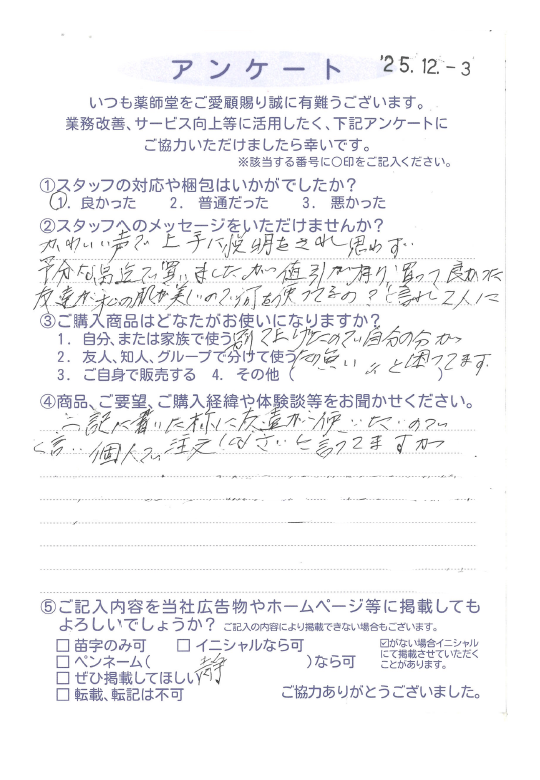 アンケート
'25.12.-3
いつも薬師堂をご愛顧賜り誠に有難うございます。
業務改善、サービス向上等に活用したく、下記アンケートに
ご協力いただけましたら幸いです。
※該当する番号に○印をご記入ください。
①スタッフの対応や梱包はいかがでしたか?
1. 良かった 2. 普通だった 3. 悪かった
②スタッフへのメッセージをいただけませんか?
かわいい声で上手に説明をされ思わず
予分な品迄で買いましたがつ値引が有り買って良かった
友達が私の肌が美しいので何を使ってるの?と言われ2人に
③ご購入商品はどなたがお使いになりますか?
1. 自分、または家族で使う 割て上げたので自分の分が
2. 友人、知人、グループで分けて使う と困ってます
3. ご自身で販売する 4. その他( )
④商品、ご要望、ご購入経緯や体験談等をお聞かせください。
記に書いた様に友達が使いたいので
と言い個人で注文しなさいと言ってますが
⑤ご記入内容を当社広告物やホームページ等に掲載しても
よろしいでしょうか? ご記入の内容により掲載できない場合もございます。
□ 苗字のみ可 □ イニシャルなら可
□ ペンネーム( 静 )なら可
□ ぜひ掲載してほしい
□ 転載、転記は不可
☑がない場合イニシャル
にて掲載させていただく
ことがあります。
ご協力ありがとうございました。